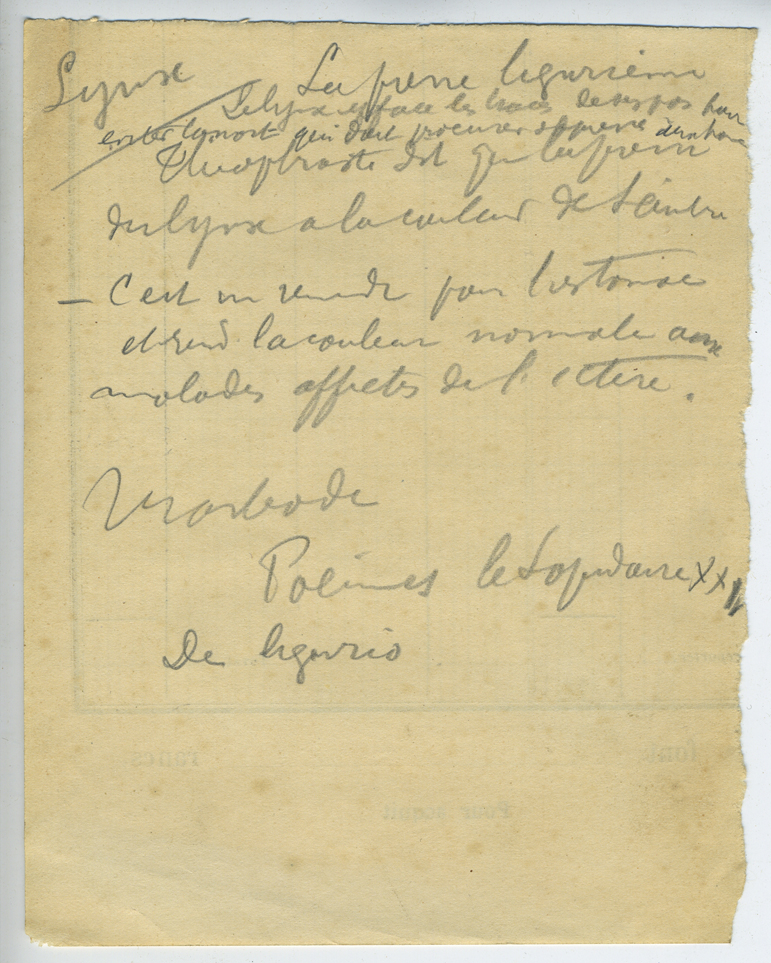 Lynx La pierre ligurienne
Le lynx efface les traces de ses pas pour
eviter la mort qui doit procurer sa pierre
Theophraste dit que la pierre
du lynx a la couleur de l'ambre
– C'est un remede pour l'estomac
et rend la couleur normale aux
malades affectes de l'ictere.
Marbode
Poèmes le Lapidaire XX
De ligurio